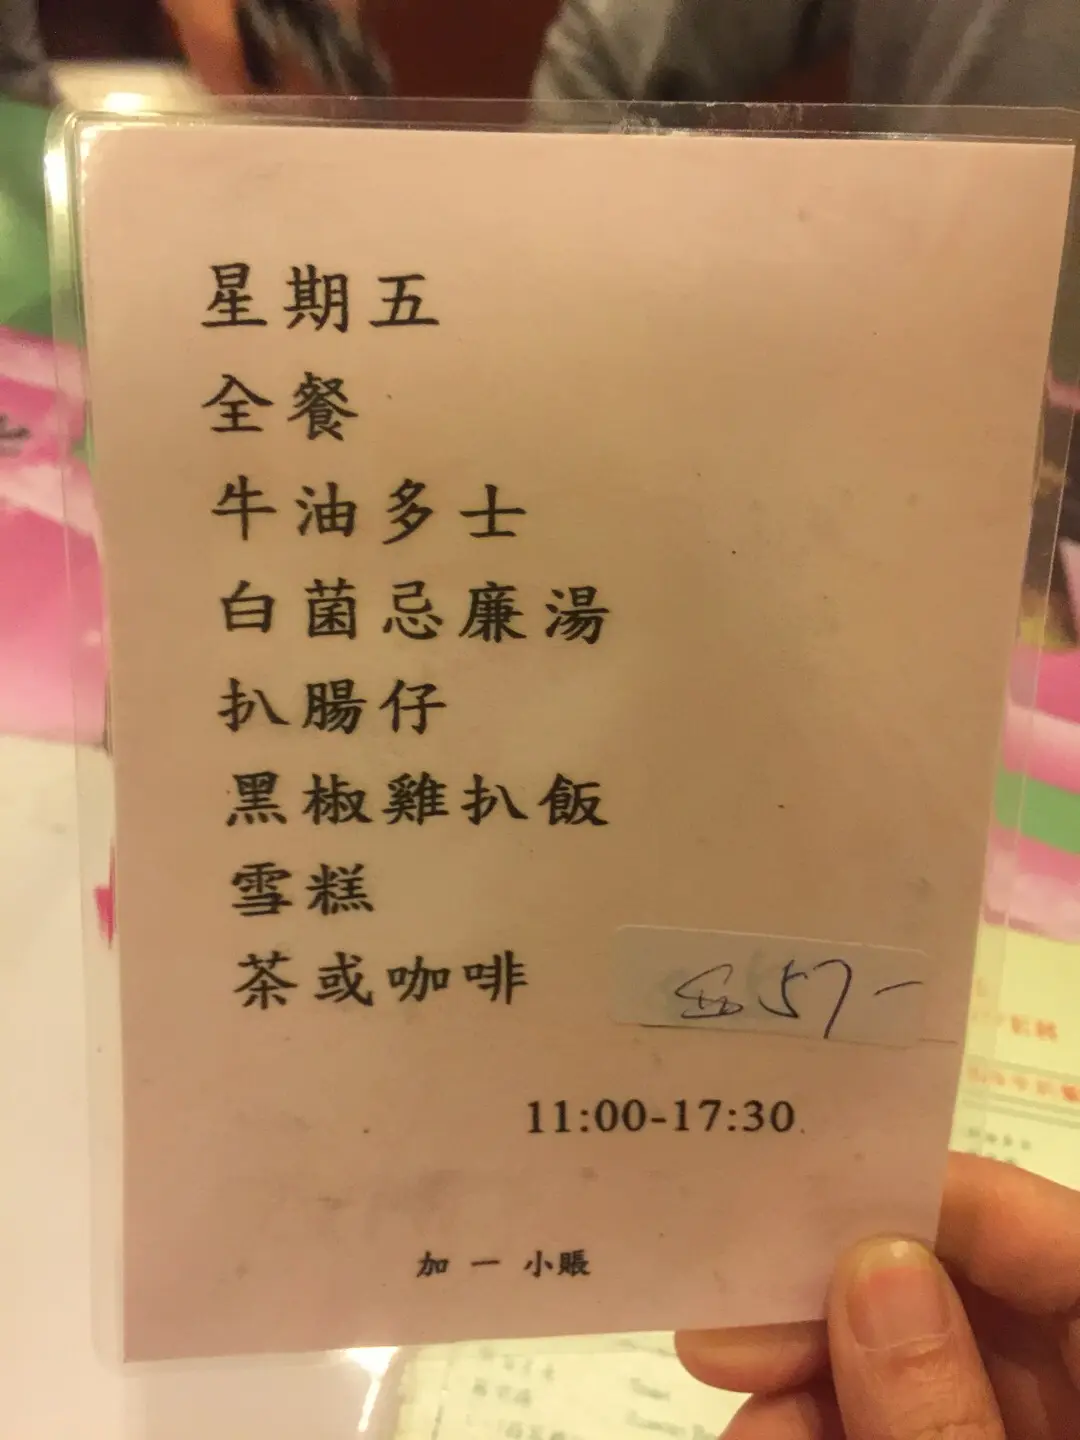 星期五
全餐
牛油多士
白菌忌廉湯
扒腸仔
黑椒雞扒飯
雪糕
茶或咖啡
57-
11:00-17:30
加一小賬